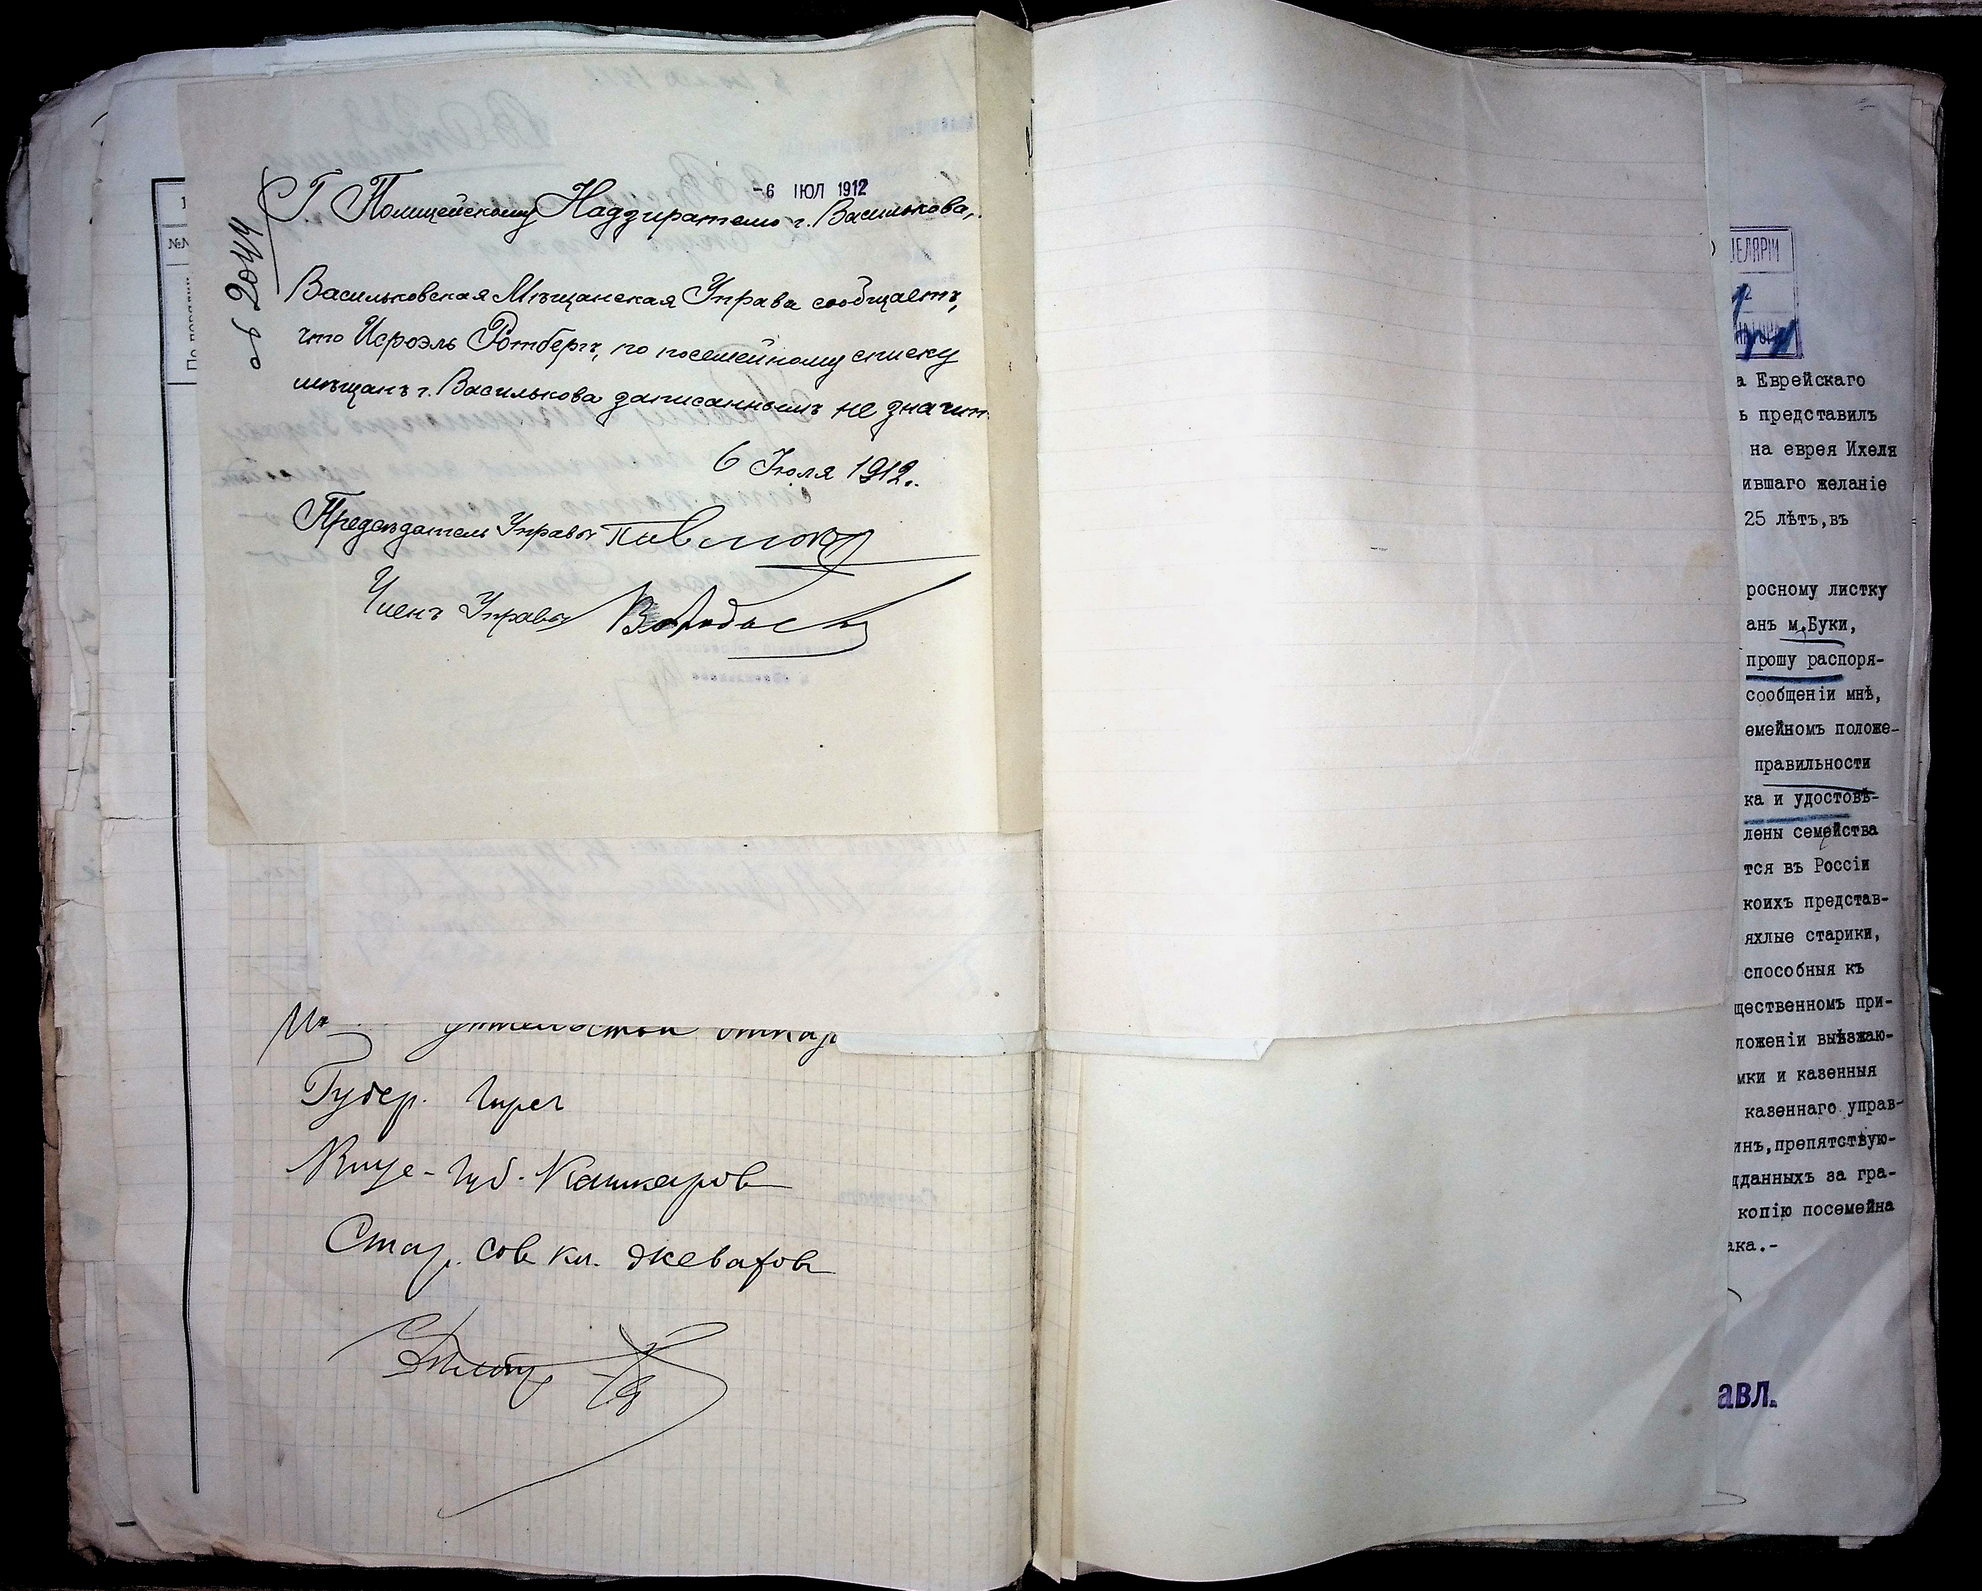 -6 ІЮЛ 1912
Г. Полицейскому Надзирателю г. Василькова,
об 2044
Васильковская Мѣщанская Управа сообщаетъ,
что Исроэль Ротбергъ, по посемейному списку
мѣщанъ г. Василькова записаннымъ не значит
6 Іюля 1912.
Предсѣдатель Управы
Членъ Управы
Губер. Гирс
Вице-Губ. Кашкаров
Стар. сов кл.
№№
По порядку
ЦЕЛЯРІИ
а Еврейскаго
ь представилъ
на еврея Ихеля
ившаго желаніе
25 лѣтъ,въ
росному листку
анъ м.Буки,
прошу распоря-
сообщеніи мнѣ,
емейномъ положе-
правильности
ка и удостовѣ-
лены семейства
тся въ Россіи
коихъ представ-
яхлые старики,
способныя къ
щественномъ при-
ложеніи выѣзжаю-
мки и казенныя
казеннаго управ-
инъ,препятствую-
дданныхъ за гра-
копію посемейна
ака.-
авл.